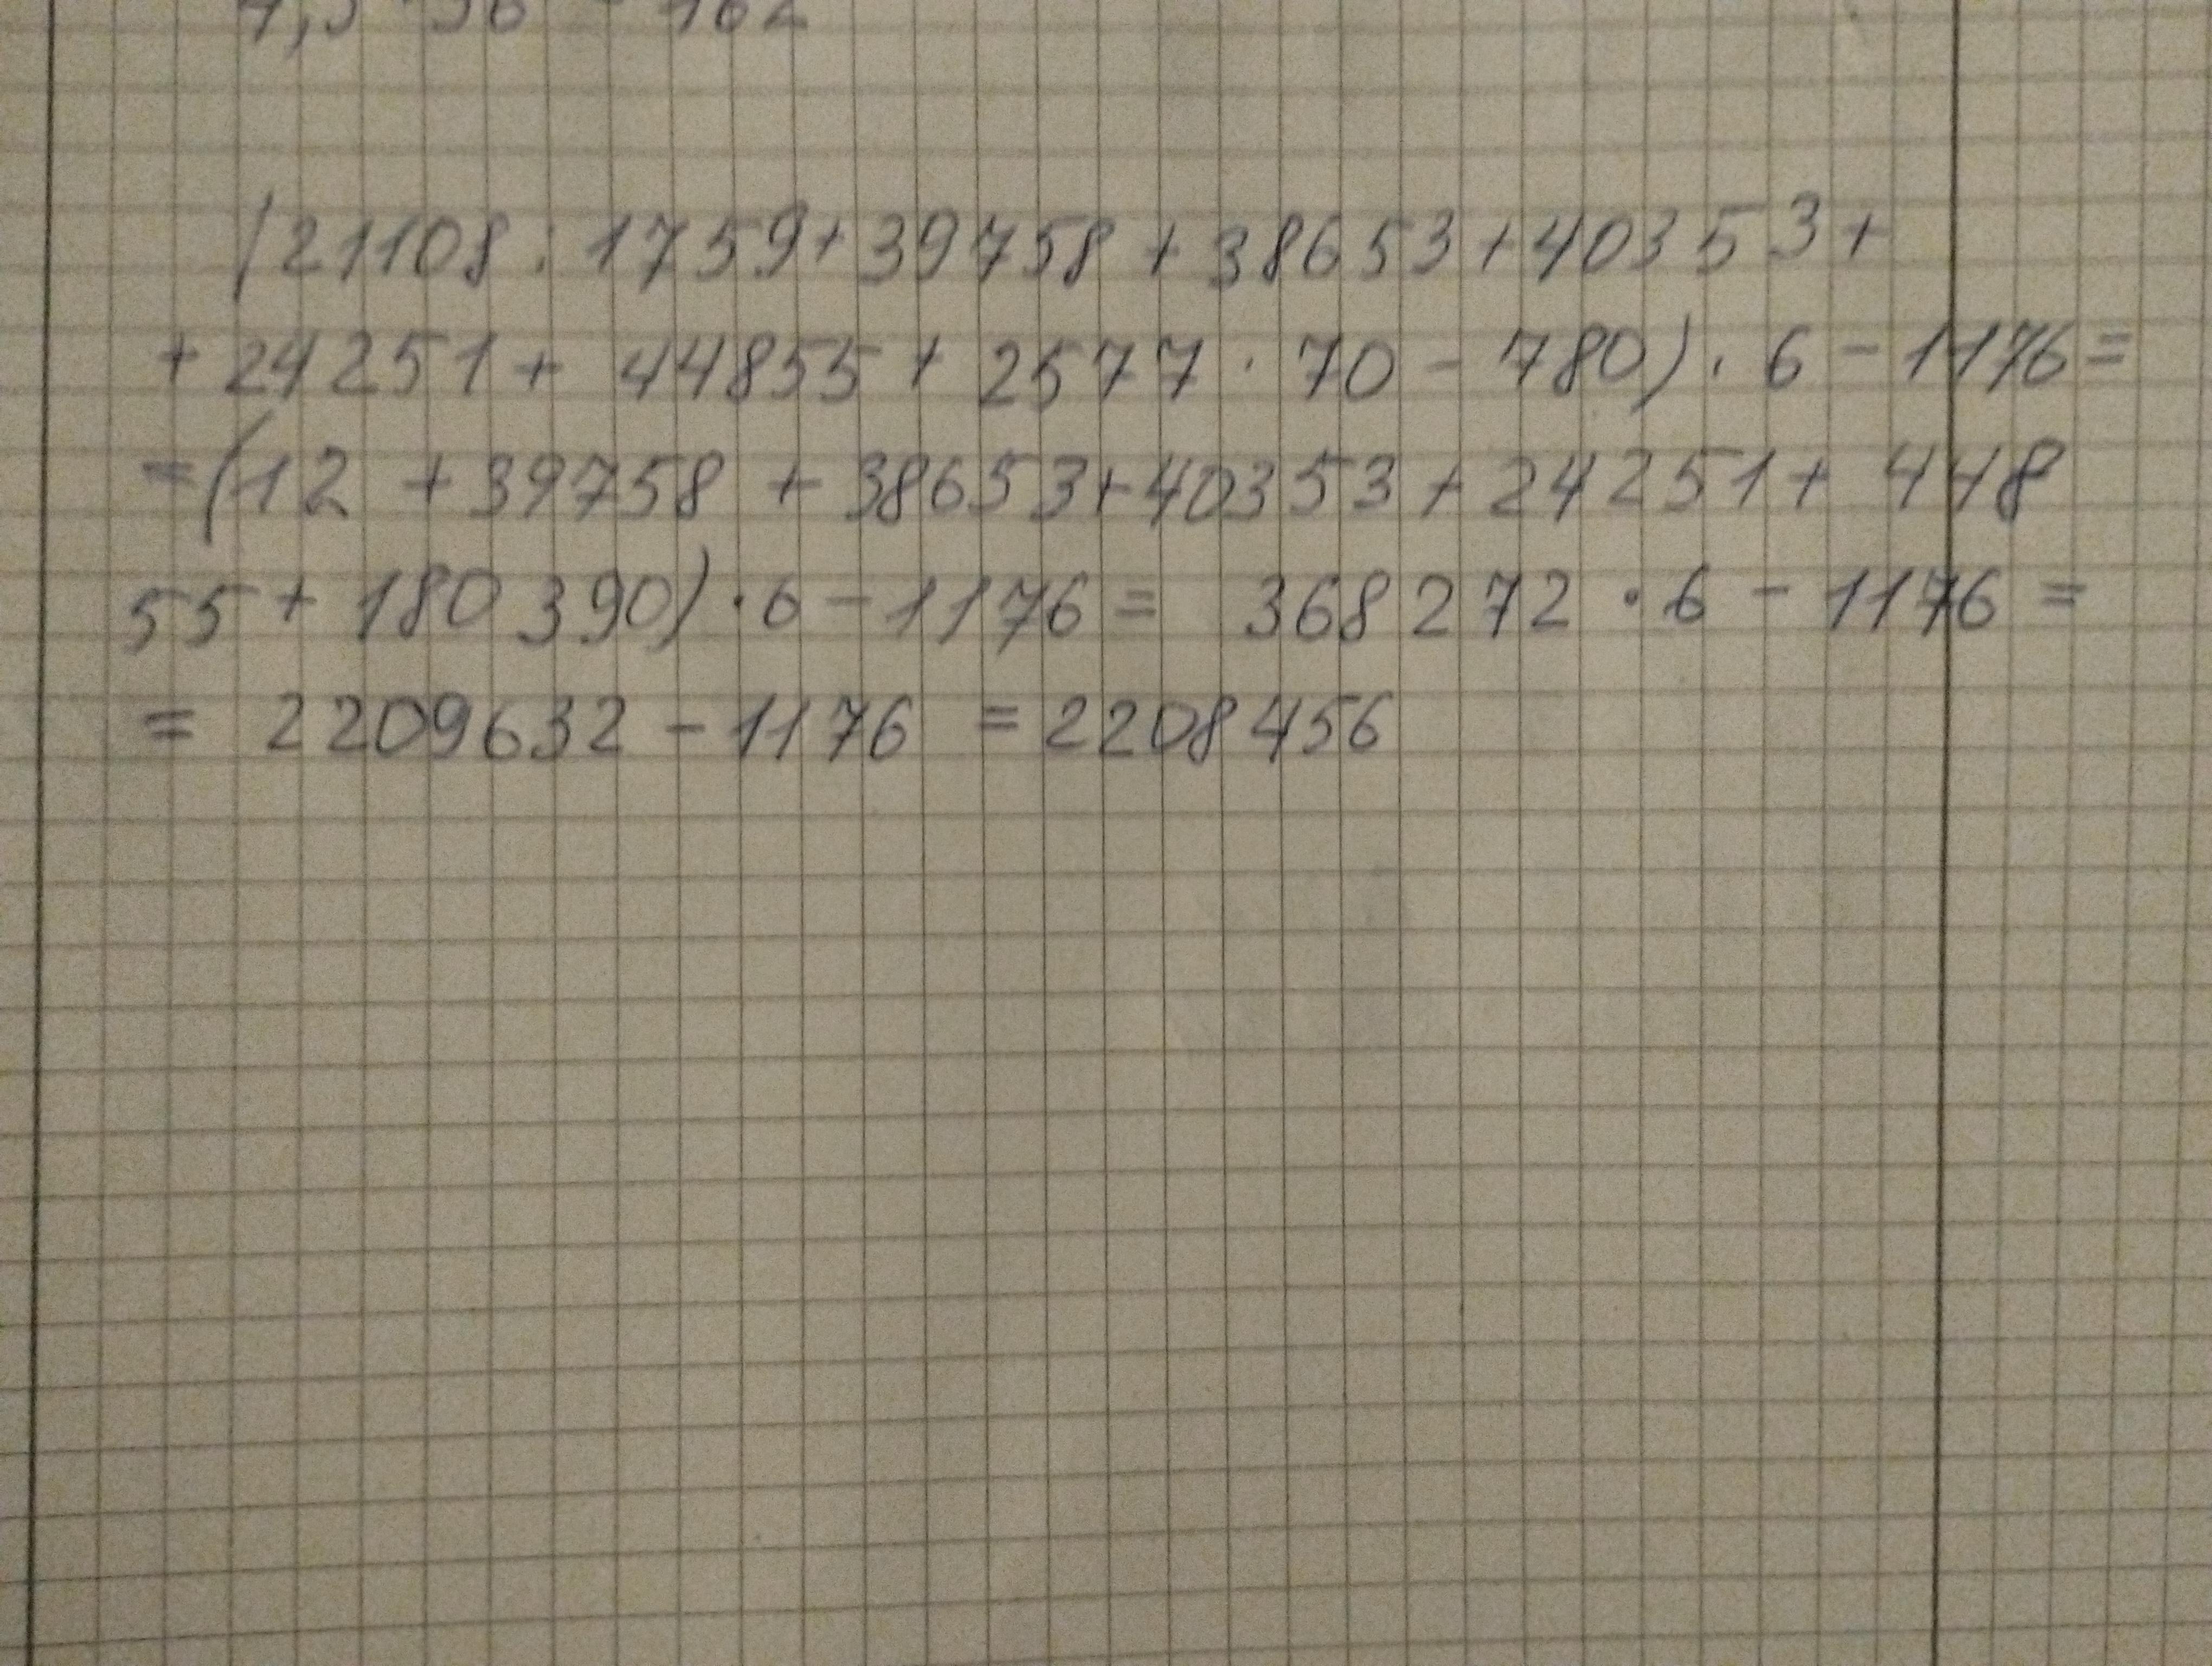 (21108 : 1759 + 39758 + 38653 + 40353 +
+ 24251 + 44855 + 2577 · 70 - 780) · 6 - 1176 =
= (12 + 39758 + 38653 + 40353 + 24251 + 448
55 + 180390) · 6 - 1176 = 368272 · 6 - 1176 =
= 2209632 - 1176 = 2208456